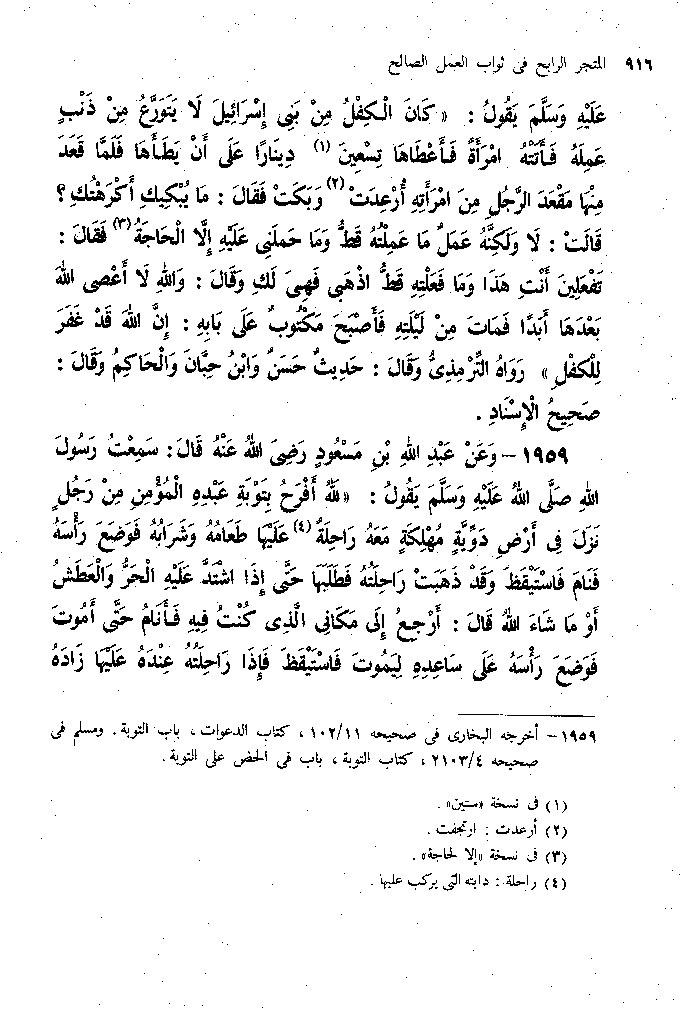 ٩١٦ المتجر الرابح فى ثواب العمل الصالح
عَلَيْهِ وَسَلَّمَ يَقُولُ : « كَانَ الْكِفْلُ مِنْ بَنِى إِسْرَائِيلَ لَا يَتَوَرَّعُ مِنْ ذَنْبٍ
عَمِلَهُ فَأَتَتْهُ امْرَأَةٌ فَأَعْطَاهَا تِسْعِينَ (١) دِينَارًا عَلَى أَنْ يَطَأَهَا فَلَمَّا قَعَدَ
مِنْهَا مَقْعَدَ الرَّجُلِ مِنَ امْرَأَتِهِ أُرْعِدَتْ (٢) وَبَكَتْ فَقَالَ : مَا يُبْكِيكِ أَكْرَهْتُكِ ؟
قَالَتْ : لَا وَلَكِنَّهُ عَمَلٌ مَا عَمِلْتُهُ قَطُّ وَمَا حَمَلَنِى عَلَيْهِ إِلَّا الْحَاجَةُ (٣) فَقَالَ :
تَفْعَلِينَ أَنْتِ هَذَا وَمَا فَعَلْتِهِ قَطُّ اذْهَبِى فَهِىَ لَكِ وَقَالَ : وَاللهِ لَا أَعْصِى اللهَ
بَعْدَهَا أَبَدًا فَمَاتَ مِنْ لَيْلَتِهِ فَأَصْبَحَ مَكْتُوبٌ عَلَى بَابِهِ : إِنَّ اللهَ قَدْ غَفَرَ
لِلْكِفْلِ » رَوَاهُ التِّرْمِذِىُّ وَقَالَ : حَدِيثٌ حَسَنٌ وَابْنُ حِبَّانَ وَالْحَاكِمُ وَقَالَ :
صَحِيحُ الْإِسْنَادِ .
١٩٥٩ – وَعَنْ عَبْدِ اللهِ بْنِ مَسْعُودٍ رَضِىَ اللهُ عَنْهُ قَالَ : سَمِعْتُ رَسُولَ
اللهِ صَلَّى اللهُ عَلَيْهِ وَسَلَّمَ يَقُولُ : « للهُ أَفْرَحُ بِتَوْبَةِ عَبْدِهِ الْمُؤْمِنِ مِنْ رَجُلٍ
نَزَلَ فِى أَرْضِ دَوِّيَّةٍ مُهْلِكَةٍ مَعَهُ رَاحِلَةٌ (٤) عَلَيْهَا طَعَامُهُ وَشَرَابُهُ فَوَضَعَ رَأْسَهُ
فَنَامَ فَاسْتَيْقَظَ وَقَدْ ذَهَبَتْ رَاحِلَتُهُ فَطَلَبَهَا حَتَّى إِذَا اشْتَدَّ عَلَيْهِ الْحَرُّ وَالْعَطَشُ
أَوْ مَا شَاءَ اللهُ قَالَ : أَرْجِعُ إِلَى مَكَانِى الَّذِى كُنْتُ فِيهِ فَأَنَامُ حَتَّى أَمُوتَ
فَوَضَعَ رَأْسَهُ عَلَى سَاعِدِهِ لِيَمُوتَ فَاسْتَيْقَظَ فَإِذَا رَاحِلَتُهُ عِنْدَهُ عَلَيْهَا زَادُهُ
١٩٥٩ – أخرجه البخارى فى صحيحه ١٠٢/١١ ، كتاب الدعوات ، باب التوبة . ومسلم فى
صحيحه ٢١٠٣/٤ ، كتاب التوبة ، باب فى الحض على التوبة .
(١) فى نسخة «ستين» .
(٢) أرعدت : ارتجفت .
(٣) فى نسخة «إلا لحاجة» .
(٤) راحلة : دابته التى يركب عليها .